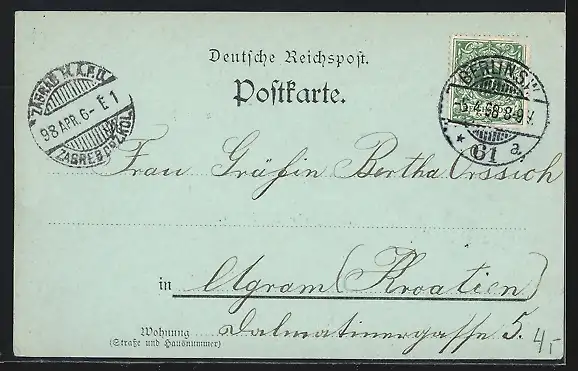 Deutsche Reichspost.
Postkarte.
98 APR. 6- E 1
BERLIN S.W.
5.4.98 8-9 V.
* 61 a
Frau Gräfin Bertha Orssich
in Agram (Kroatien)
Wohnung Dalmatinergasse 5.
(Straße und Hausnummer)
4,-